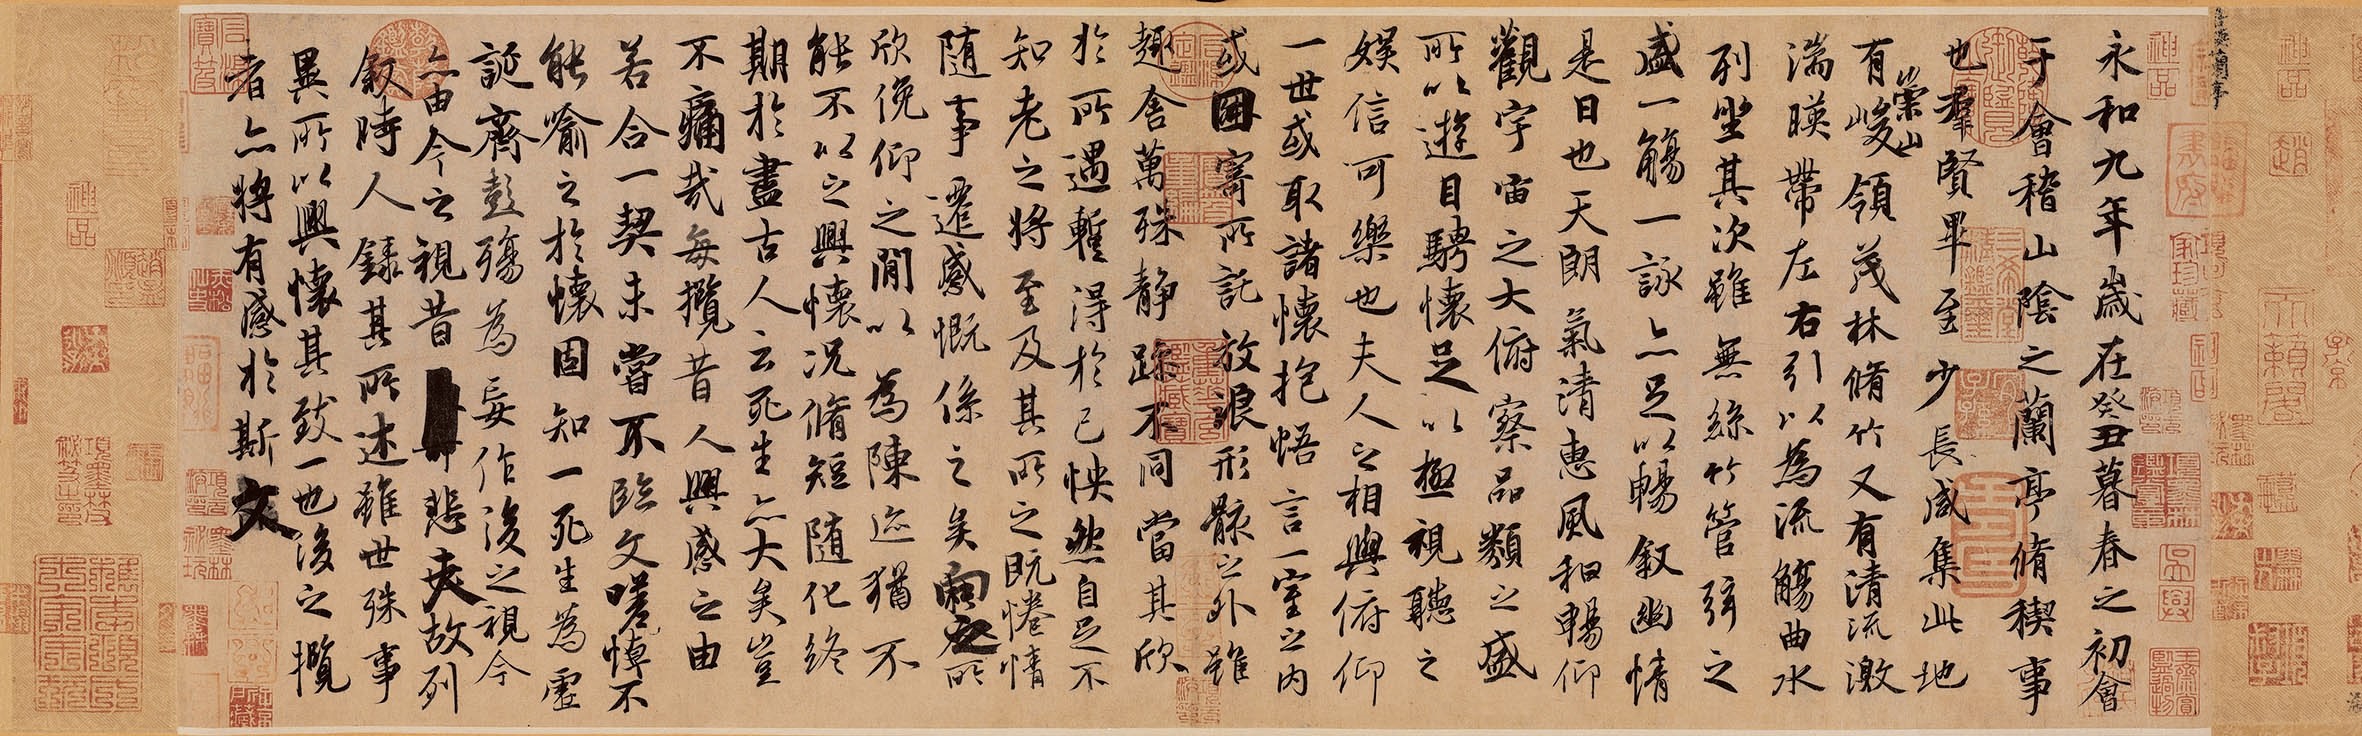 永和九年歲在癸丑暮春之初會
于會稽山陰之蘭亭脩稧事
也羣賢畢至少長咸集此地
有崇山峻領茂林脩竹又有清流激
湍暎帶左右引以為流觴曲水
列坐其次雖無絲竹管弦之
盛一觴一詠亦足以暢叙幽情
是日也天朗氣清惠風和暢仰
觀宇宙之大俯察品類之盛
所以遊目騁懷足以極視聽之
娛信可樂也夫人之相與俯仰
一世或取諸懷抱悟言一室之內
或因寄所託放浪形骸之外雖
趣舍萬殊静躁不同當其欣
於所遇暫得於己怏然自足不
知老之將至及其所之既惓情
隨事遷感慨係之矣向之所
欣俛仰之閒以為陳迹猶不
能不以之興懷況脩短隨化終
期於盡古人云死生亦大矣豈
不痛哉每攬昔人興感之由
若合一契未嘗不臨文嗟悼不
能喻之於懷固知一死生為虛
誕齊彭殤為妄作後之視今
亦由今之視昔悲夫故列
叙時人錄其所述雖世殊事
異所以興懷其致一也後之攬
者亦將有感於斯文